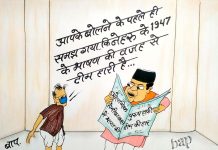 आपके बोलने के पहले ही
समझ गया कि नेहरु के 1947
के भाषण की वजह से
टीम हारी है...
बाप
bap